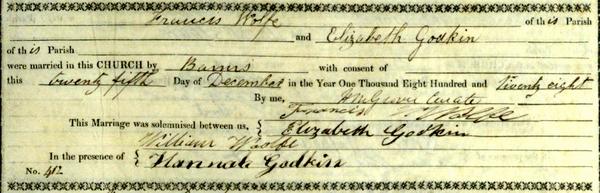 Francis Wolfe of this Parish
and Elizabeth Godkin
of this Parish
were married in this CHURCH by Banns with consent of
this twenty fifth Day of December in the Year One Thousand Eight Hundred and twenty eight
By me, Curate
This Marriage was solemnised between us, { Francis Wolfe
Elizabeth Godkin
In the presence of { William Wolfe
Hannah Godkin
No. 412.